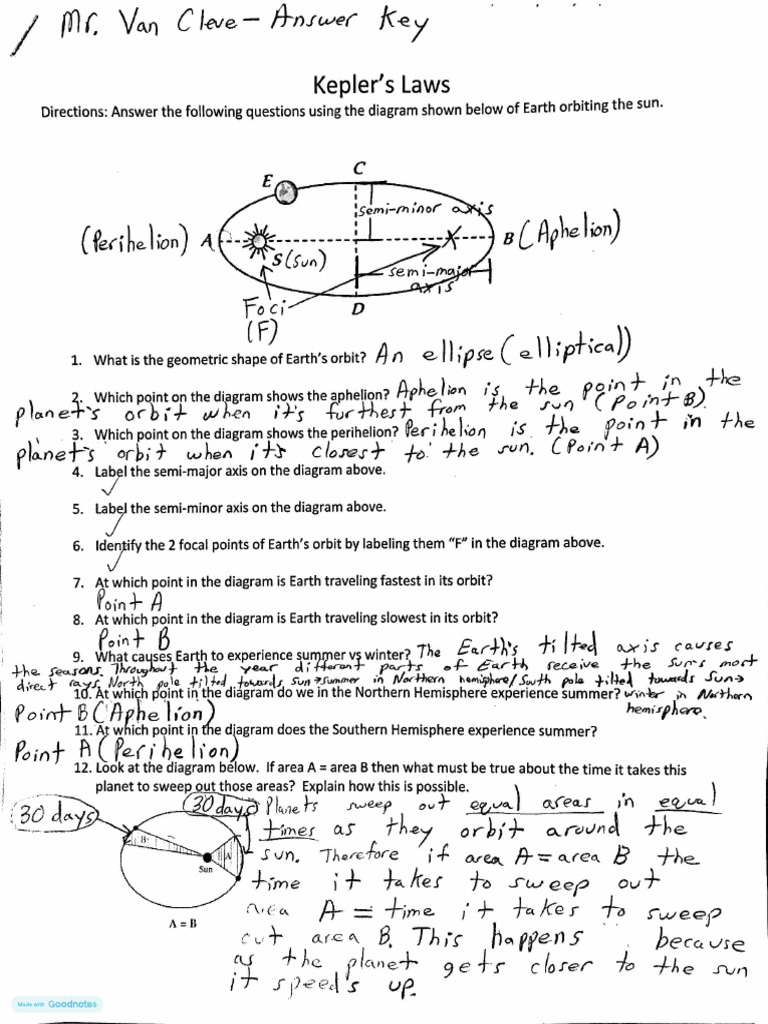 Mr. Van Cleve - Answer Key
Kepler's Laws
Directions: Answer the following questions using the diagram shown below of Earth orbiting the sun.
C
E
semi-minor axis
(Perihelion) A
S(sun)
B (Aphelion)
semi-major
axis
Foci
(F)
D
1. What is the geometric shape of Earth's orbit? An ellipse (elliptical)
2. Which point on the diagram shows the aphelion? Aphelion is the point in the
planet's orbit when it's furthest from the sun (Point B).
3. Which point on the diagram shows the perihelion? Perihelion is the point in the
planet's orbit when it's closest to the sun. (Point A)
4. Label the semi-major axis on the diagram above.
5. Label the semi-minor axis on the diagram above.
6. Identify the 2 focal points of Earth's orbit by labeling them "F" in the diagram above.
7. At which point in the diagram is Earth traveling fastest in its orbit?
Point A
8. At which point in the diagram is Earth traveling slowest in its orbit?
Point B
9. What causes Earth to experience summer vs winter? The Earth's tilted axis causes
the seasons. Throughout the year different parts of Earth receive the sun's most
direct rays. North pole tilted towards sun→summer in Northern hemisphere/South pole tilted towards sun→
10. At which point in the diagram do we in the Northern Hemisphere experience summer? winter in Northern
hemisphere.
Point B (Aphelion)
11. At which point in the diagram does the Southern Hemisphere experience summer?
Point A (Perihelion)
12. Look at the diagram below. If area A = area B then what must be true about the time it takes this
planet to sweep out those areas? Explain how this is possible.
30 days
30 days
Planets sweep out equal areas in equal
times as they orbit around the
sun. Therefore if area A = area B the
time it takes to sweep out
area A = time it takes to sweep
out area B. This happens because
as the planet gets closer to the sun
it speed's up.
B
A
Sun
A = B
Made with Goodnotes